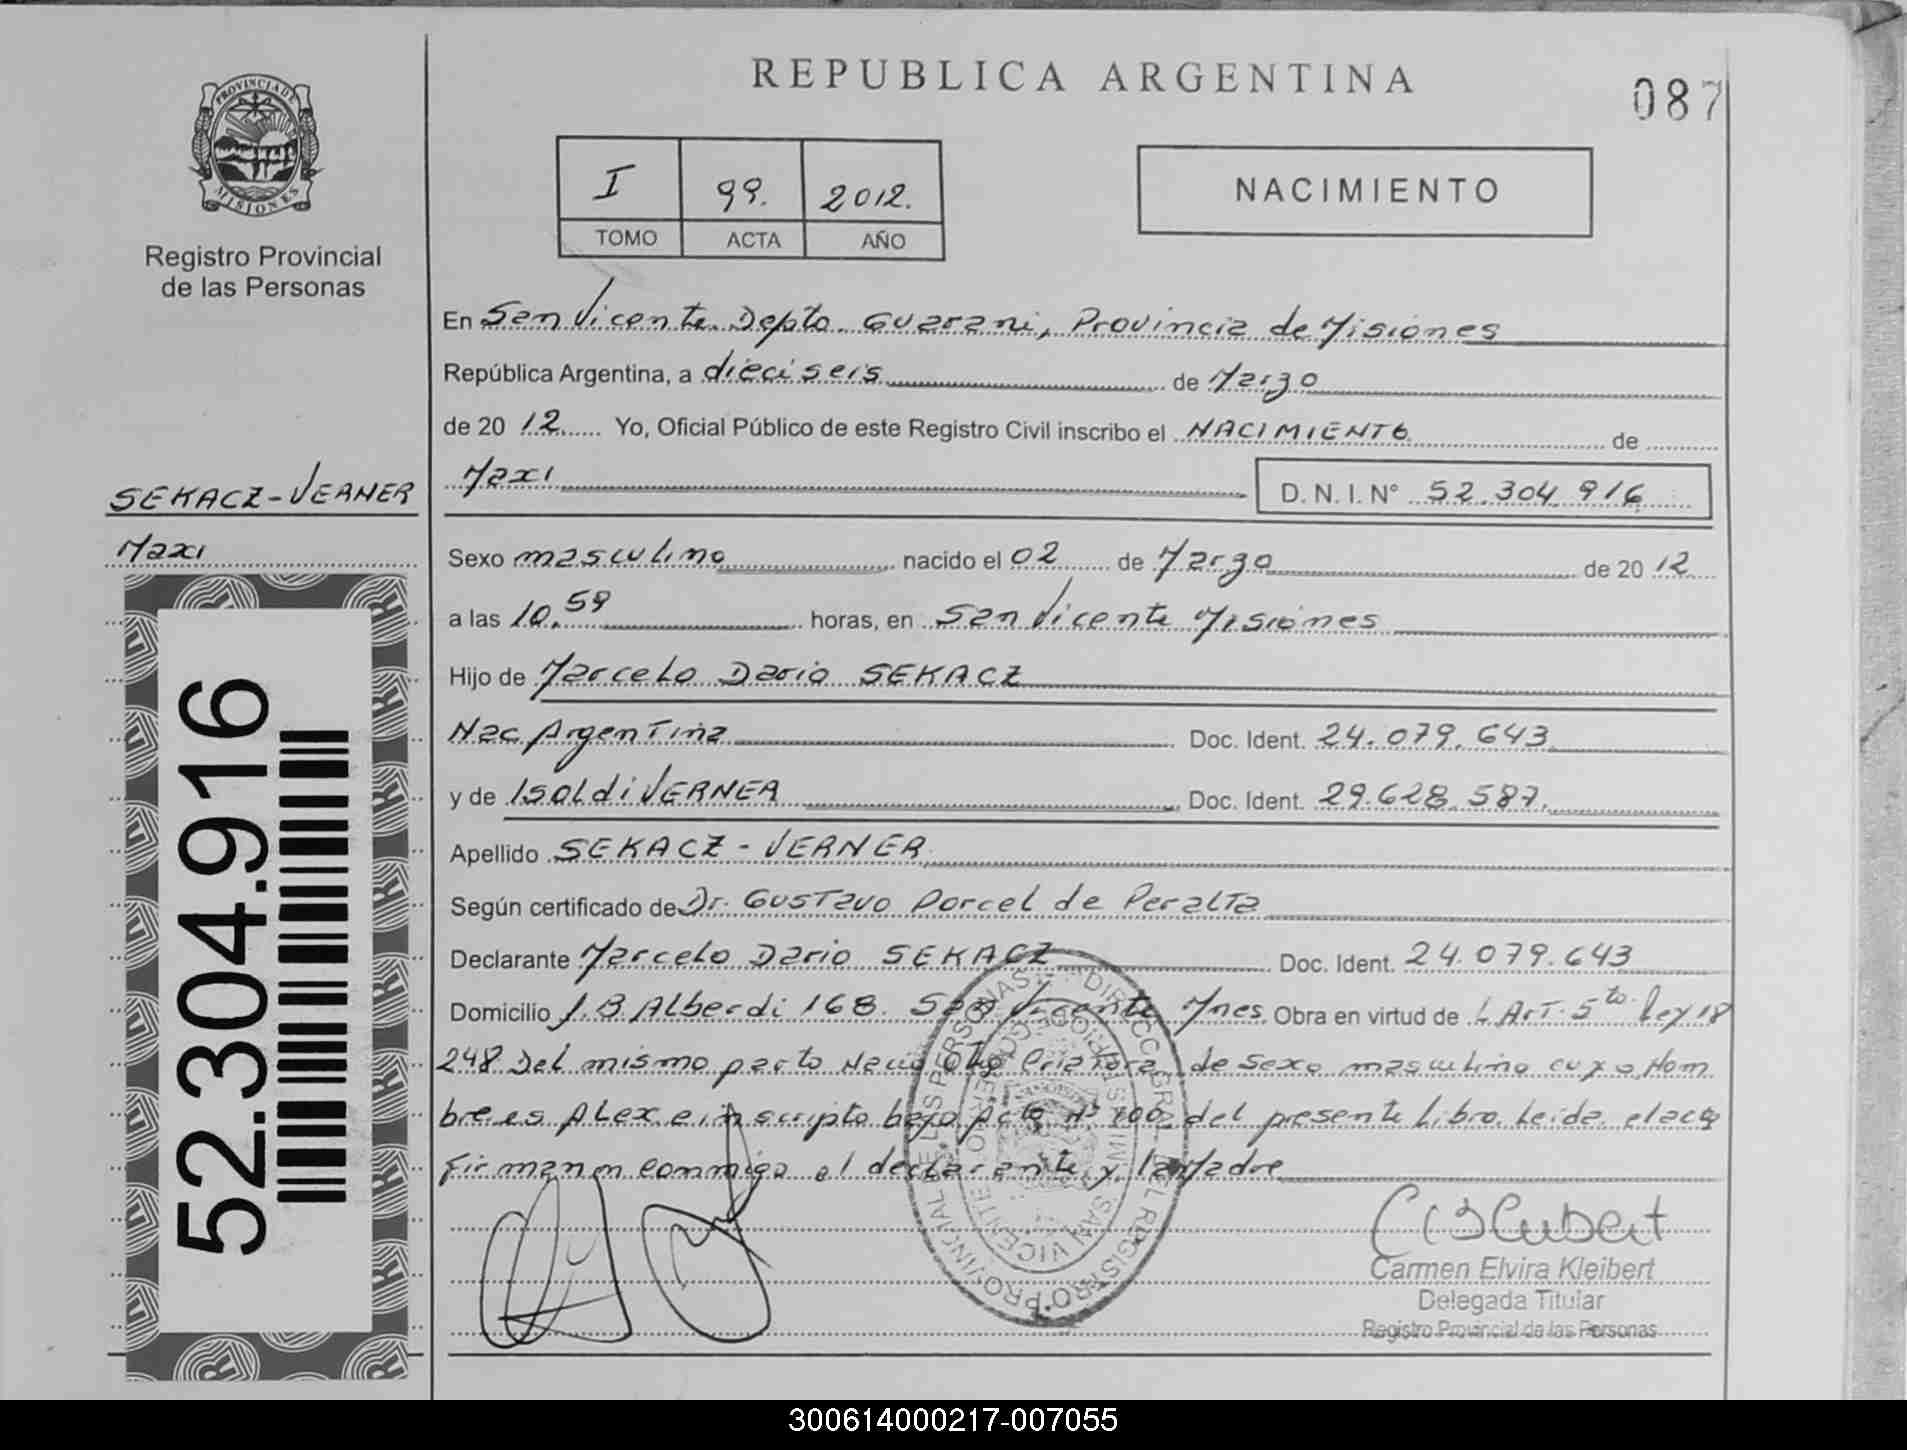 REPUBLICA ARGENTINA
087
PROVINCIA DE
MISIONES
Registro Provincial
de las Personas
I 99. 2012.
TOMO ACTA AÑO
NACIMIENTO
En San Vicente Depto Guarani, Provincia de Misiones
República Argentina, a dieciseis de Marzo
de 20 12 Yo, Oficial Público de este Registro Civil inscribo el NACIMIENTO de
Maxi D. N. I. N° 52.304.916
SEKACZ-VERNER
Maxi
52.304.916
Sexo masculino nacido el 02 de Marzo de 20 12
a las 10.59 horas, en San Vicente Misiones
Hijo de Marcelo Dario SEKACZ
Nac Argentina Doc. Ident. 24.079.643
y de Isoldi VERNER Doc. Ident. 29.628.587.
Apellido SEKACZ - VERNER
Según certificado de Dr. Gustavo Porcel de Peralta
Declarante Marcelo Dario SEKACZ Doc. Ident. 24.079.643
Domicilio J.B Alberdi 168. San Vicente Mnes Obra en virtud de L Art. 5to Ley 18
248 Del mismo parto Nacio otra Criatura de sexo masculino cuyo Nom
bre es Alex e inscripto bajo Acta N° 100 del presente Libro. Leida el acta
Firman conmigo el declarante y la Madre
DIRECC. GRAL. DEL REGISTRO PROVINCIAL DE LAS PERSONAS
SAN VICENTE
Carmen Elvira Kleibert
Delegada Titular
Registro Provincial de las Personas
300614000217-007055